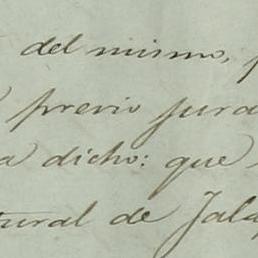 del mismo,
previo jura
dicho: que
tural de Jala